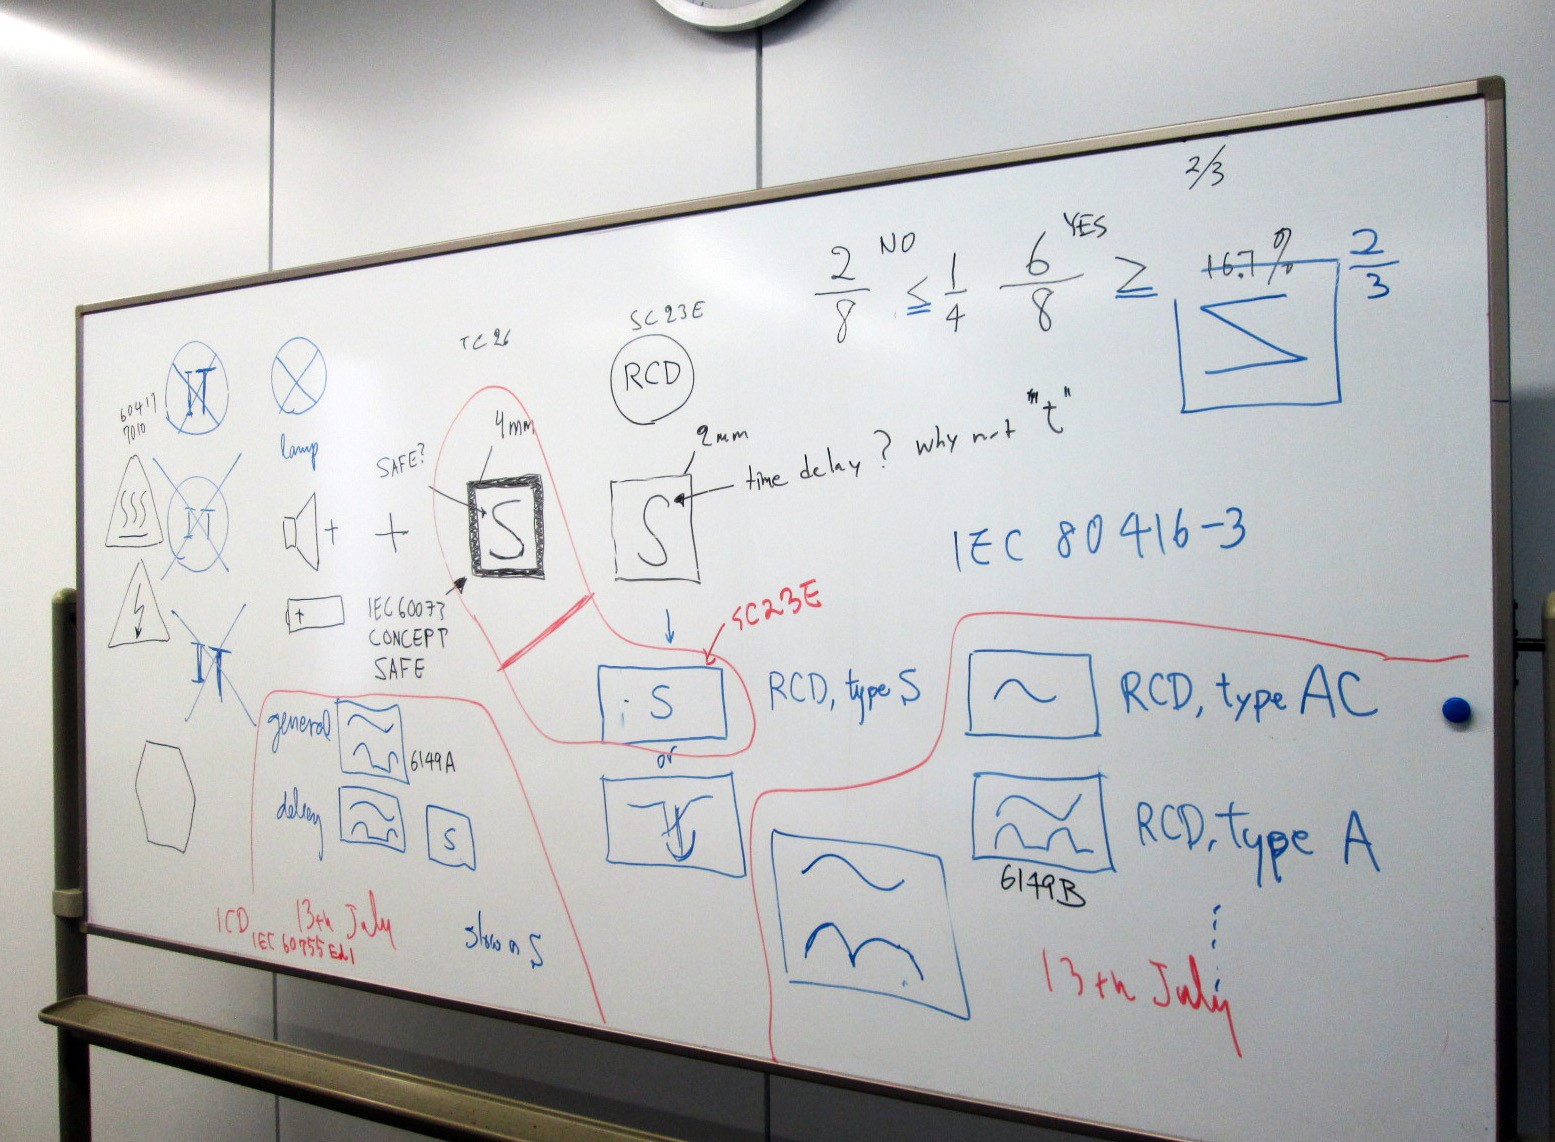 2/3
2/8 NO ≦ 1/4 6/8 YES ≧ 16.7% 2/3
Σ
TC26
SC23E
RCD
60417
7010
IT
lamp
SAFE?
4mm
S
2mm
S
time delay? why not "t"
IT
+
+
+
IEC 80416-3
IEC60073
CONCEPT
SAFE
SC23E
IT
S
RCD, type S
or
RCD, type AC
RCD, type A
6149B
13th July
general
6149A
delay
S
ICD 13th July
IEC 60755 Ed1
S